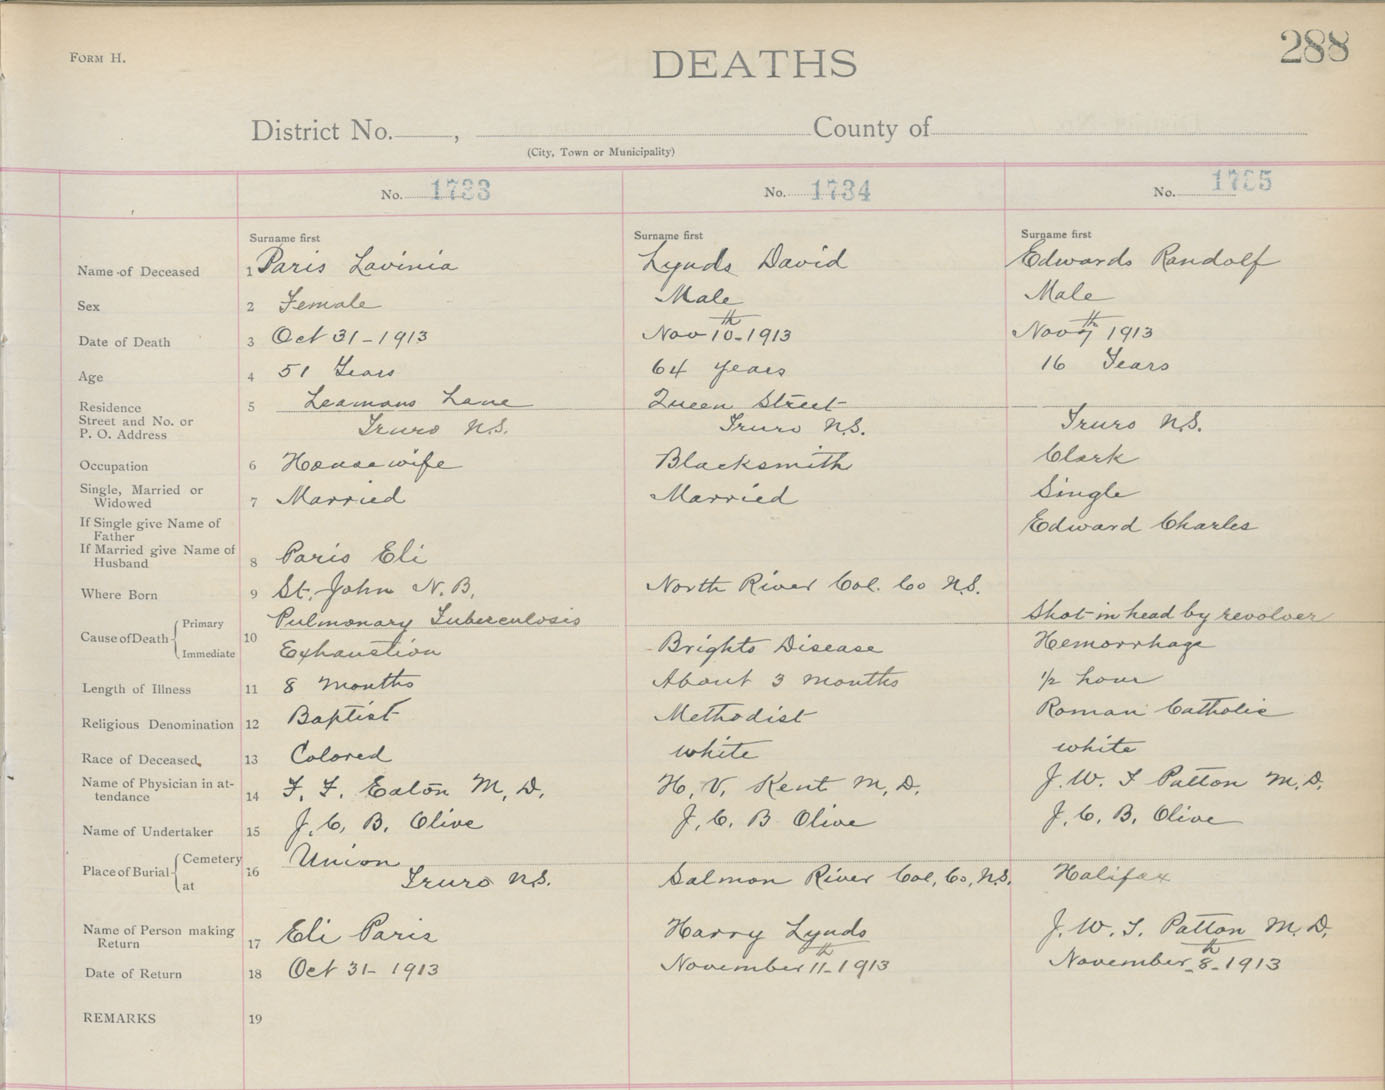 FORM H.
DEATHS
288
District No. , County of
(City, Town or Municipality)
No. 1733 No. 1734 No. 1735
Surname first Surname first Surname first
Name of Deceased 1 Paris Lavinia Lynds David Edwards Randolf
Sex 2 Female Male Male
Date of Death 3 Oct 31 - 1913 Nov 10th - 1913 Nov 7th 1913
Age 4 51 Years 64 years 16 Years
Residence 5 Leamans Lane Queen Street
Street and No. or
P. O. Address Truro N.S. Truro N.S. Truro N.S.
Occupation 6 Housewife Blacksmith Clark
Single, Married or
Widowed 7 Married Married Single
If Single give Name of
Father Edward Charles
If Married give Name of
Husband 8 Paris Eli
Where Born 9 St. John N.B. North River Col. Co N.S.
Cause of Death Primary 10 Pulmonary Tuberculosis Shot in head by revolver
Immediate Exhaustion Brights Disease Hemorrhage
Length of Illness 11 8 months About 3 months 1/2 hour
Religious Denomination 12 Baptist Methodist Roman Catholic
Race of Deceased 13 Colored white white
Name of Physician in at-
tendance 14 F. F. Eaton M.D. H. V. Kent M.D. J. W. T Patton M.D.
Name of Undertaker 15 J. C. B. Olive J. C. B Olive J. C. B. Olive
Place of Burial Cemetery 16 Union
at Truro N.S. Salmon River Col. Co. N.S. Halifax
Name of Person making
Return 17 Eli Paris Harry Lynds J. W. T. Patton M.D.
Date of Return 18 Oct 31 - 1913 November 11th - 1913 November 8th - 1913
REMARKS 19